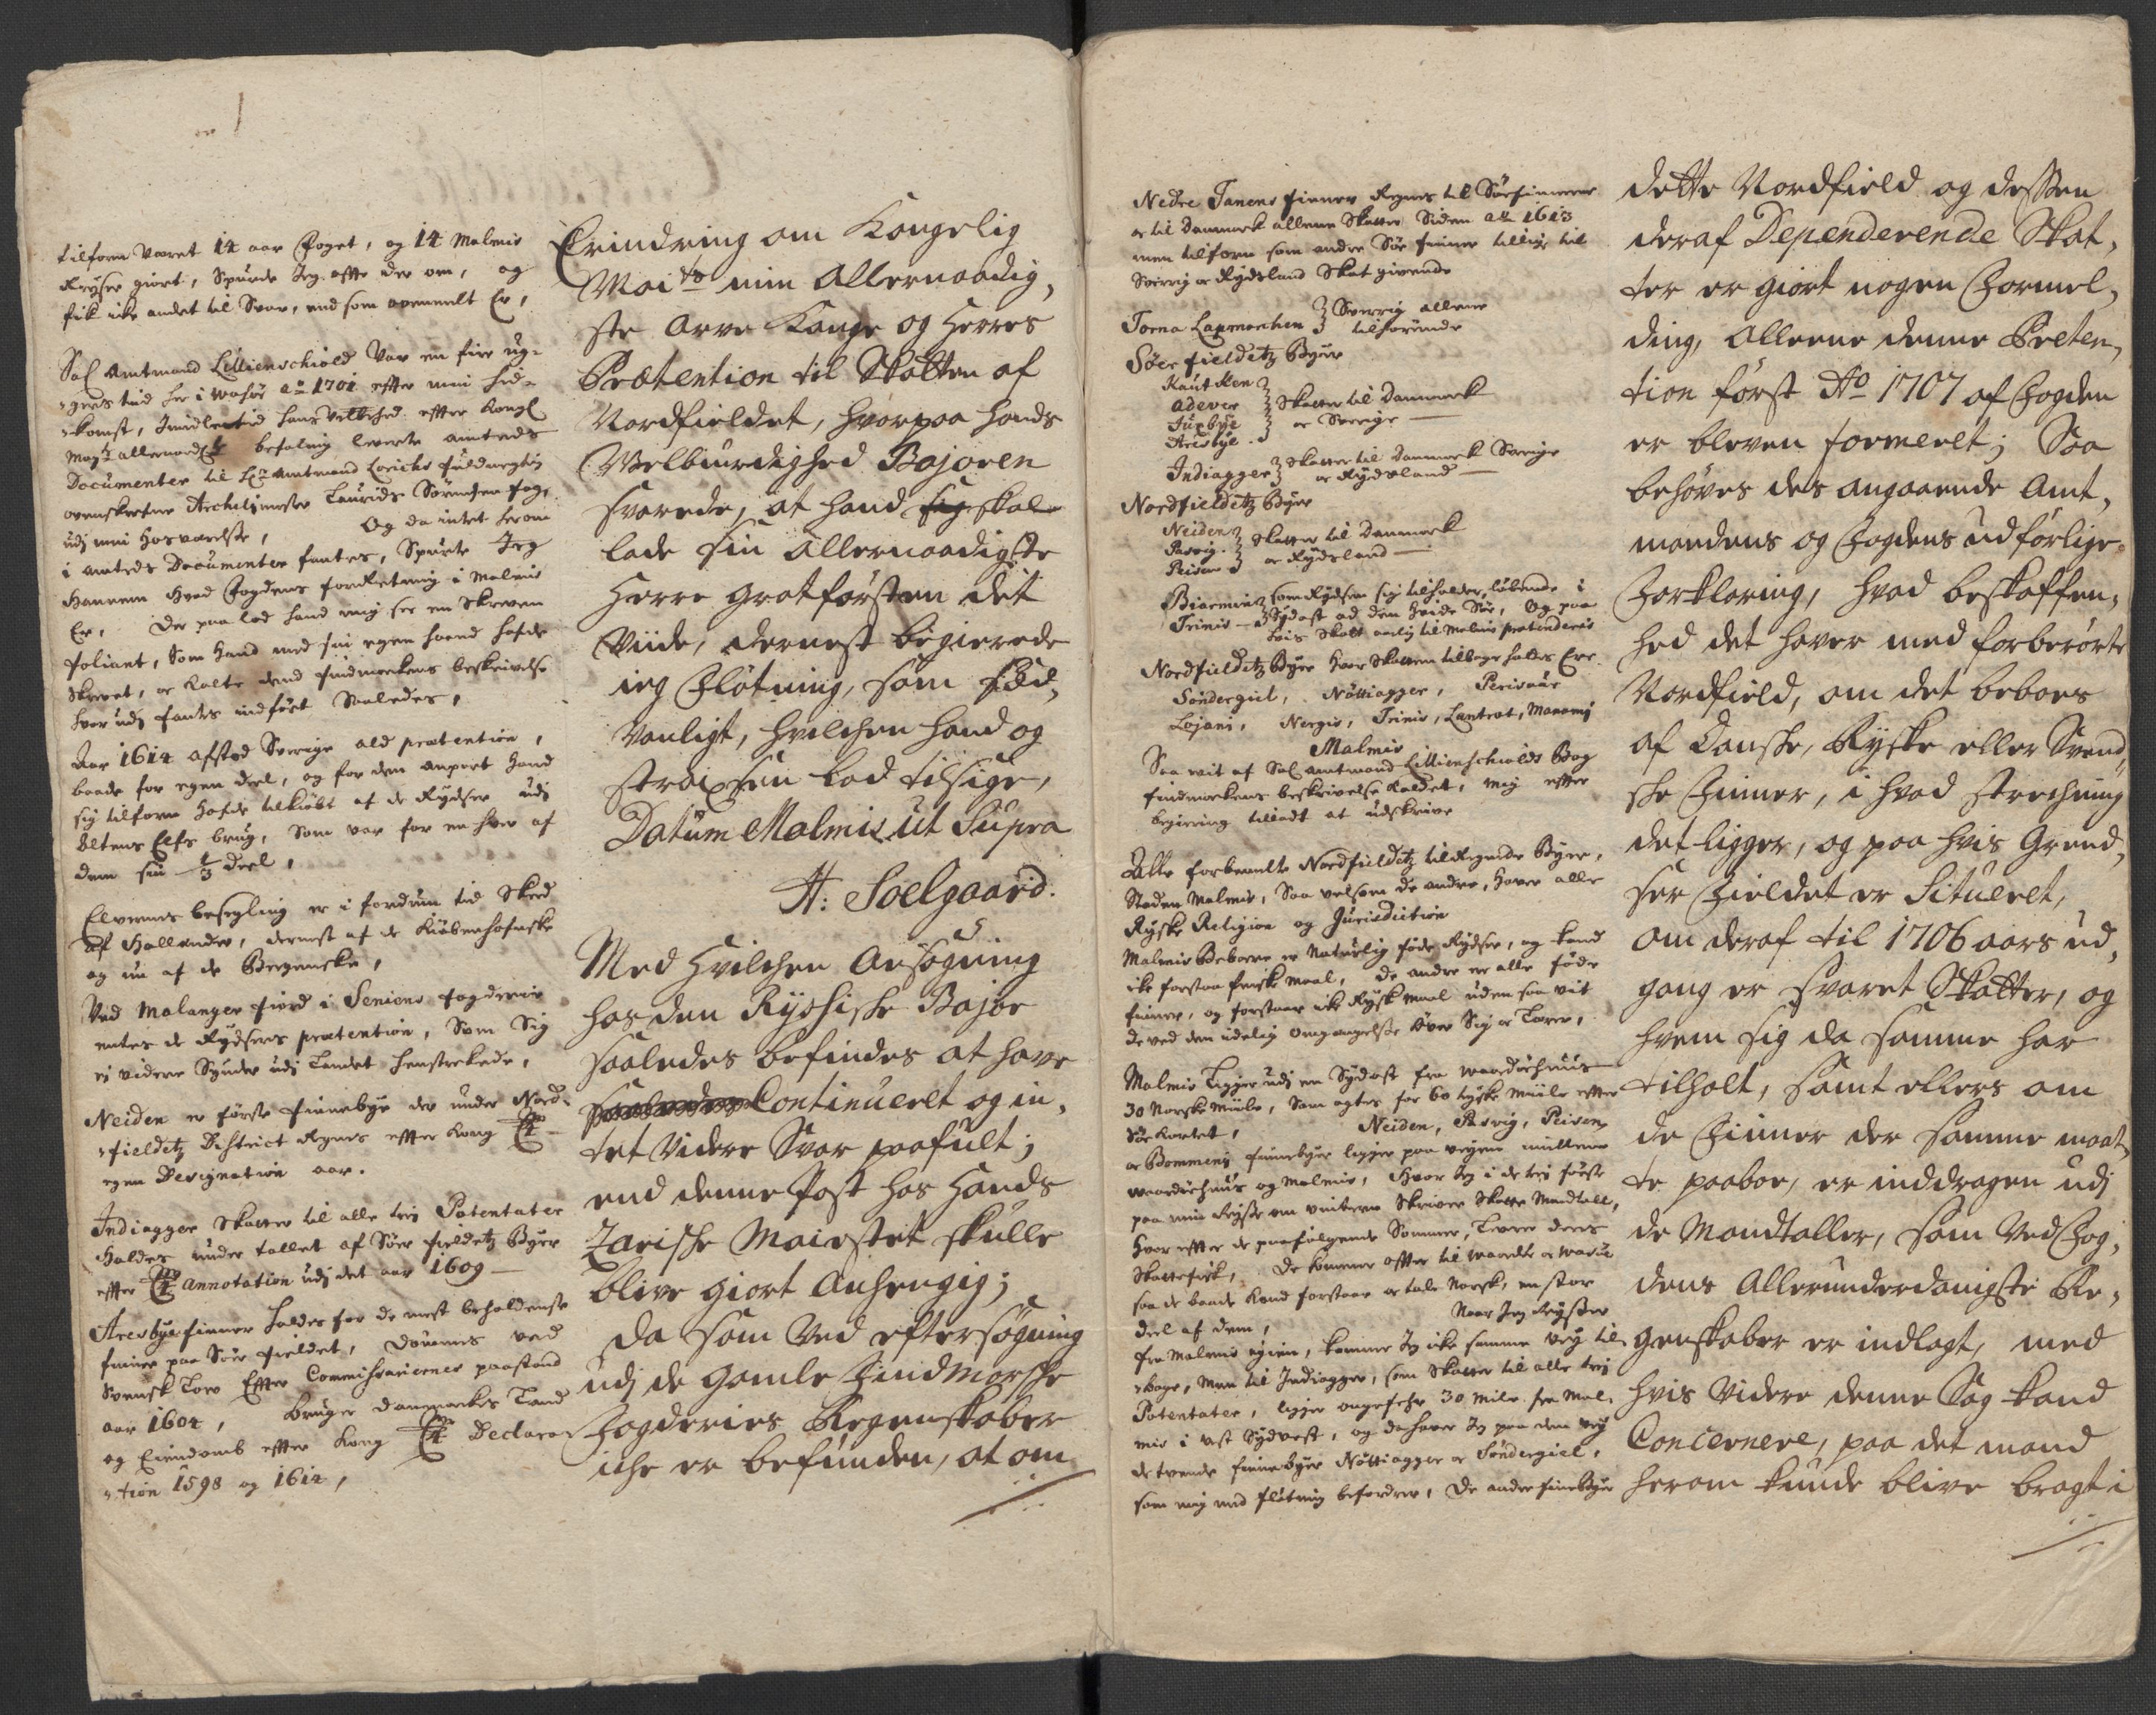 tilforn Været 14 aar Foget, og 14 Malmis
Reyser giort, Spurde Jeg effter der om, og
fik icke andet til Svar, end som ovenmelt Er,
Sal Amtmand Lillienschiold Var en fire ug-
gers tiid her i Wadsø Ao 1701 effter min hid-
komst, Imidlertid hans Velb:hed effter Kongl
Mayts allernaadste befaling leverte amtets
Documenter til Hr Amtmand Lorichs fuldmegtig
ovenskrefne Archelimester Laurids Sørensen fog.
udj min hosværelse, Og da intet herom
i amtets Documenter fantes, Spurte Jeg
Hannem Hvad Fogdens forRetning i Malmis
Er, Der paa lod hand mig see en Skreven
foliant, Som Hand med sin egen haand hafde
Skrevet, oc kalte dend findmarkens beskrivelse
hvor udj fantes indført Saaledes,
Aar 1614 afstod Sverige ald prætention,
baade for egen deel, og for den anpart Hand
sig tilforn hafde tilkiøbt af de Rydser udj
Altens Elfs brug, Som var for en hver af
dem sin 1/3 deel,
Elvernes besegling er i fordum tid Skeed
af Hollender, dernest af de Kiøbenhafnske
og nu af de Bergenske,
Ved Malanger fiord i Seniens fogderie
entes de Rydsers prætention, Som Sig
ej videre Synder udj Landet henstrekede,
Neiden er første finnebye der under Nord-
fieldetz District Regnes effter Kong C4
egen Designation aar.
Indiagger Skatter til alle trej Potentater
Holdes under tallet af Søer fieldetz Byer
effter C4 annotation udj det aar 1609
Aresbye finner holdes for de mest beholdenste
finner paa Søer fieldet, Dømmes ved
Svensk Lov Effter Commissariernes paastand
aar 1604, bruger Danmarkes Land
og Eiendomb effter Kong C4 Declara-
tion 1598 og 1612,
Erindring om Kongelig
Maits min Allernaadig,
ste Arve Konge og Herres
Prætention til Skatten af
Nordfieldet, hvorpaa hands
Welbiurdighed Bajoren
svarede, at hand sig skal
lade sin allernaadigste
Herre Grotførsten det
Viide, dernest begierede
ieg Fløtning, som sæd,
vanligt, hvilchen hand og
strax lod tilsige,
Datum Malmis ut Supra
H: Soelgaard.
Med hvilchen Ansøgning
hos den Ryssishe Bajor
saaledes befindes at have
saaledes Continueret og in,
tet videre Svar paafult;
end denne Post hos Hands
Zarische Maiestet skulle
blive giort Anhengig;
Da som ved eftersøgning
udj de gamle Findmarske
Fogderies Regenskaber
iche er befunden, at om
Nedre Tanens finner Regnes til Søefinnerne
oc til Danmark allene Skatter Siden ao 1613
men tilforn som andre Søe finner tillige til
Sverrig oc Rydsland Skat givende
Torna Lapmarchen } Sverrig allene
tilhørende
Søer fieldetz Byer
Kautken
adever } Skatter til Danmark
Juxbye oc Sverige
Aresbye
Indiagger } Skatter til Danmark Sverige
oc Rydsland
Nordfieldetz Byer
Neiden } Skatter til Danmark
Pasvig. oc Rydsland
Peisen
Biarmin } som Rydsen sig tilholder, løbende i
Trinis Sydost ad den hvide Søe, Og paa
hvis Skatt aarlig til Malmis prætenderes
Nordfieldetz Byer Hvor Skatten tilbage holdes Ere
Søndergiel, Nøttiagger, Perisaür
Lojani, Nergis, Trinis, Lantrat, Manomj
Malmis
Saa vit af Sal Amtmand Lillienschiolds Bog
findmarkens beskrivelse Kaldet, mig effter
begiering tilladt at udskrive
Alle forbemelte Nordfieldetz tilRegnede Byer,
Staden Malmis, Saa velsom de andre, Haver alle
Ryske Religion og Jurisdiction
Malmis Beboere er Naturlig føde Rydser, og kand
icke forstaa finsk maal, de andre er alle føde
finner, og forstaar icke Rysk maal uden saa vit
de ved den idelig omgangelse øver Sig oc Lærer,
Malmis Ligger udj en Sydost fra Waardøehuus
30 Norske Miile, Som agtes for 60 tyske Miile effter
Søe Kortet, Neiden, Pasvig, Peisen
oc Bommenj finnebyer ligger paa veyen imellem
Waardøehuus og Malmis, Hvor Jeg i de trej første
paa min Reyse om vinteren Skriver Skatte Mandtall,
Hvor effter de paafølgende Sommer, Lever deres
Skattefisk, De kommer offte til Waardøe oc Wadsøe
saa de baade Kand forstaa oc tale Norsk, en stor
deel af dem, Naar Jeg Reyser
fra Malmis igien, kommer Jeg icke samme Vej til-
bage, Men til Indiagger, som Skatter til alle trej
Potentater, ligger ongefehr 30 Mile fra Mal-
mis i vest Sydvest, og da haver Jeg paa den vej
de tvende finnebyer Nøttiagger oc Søndergiel,
som mig med fløtning befordrer, De andre finnebyer
dette Nordfield og dessen
deraf Dependerende Skat,
ter er giort nogen Formel,
ding, Alleene denne Preten,
tion først Ao 1707 af Fogden
er bleven formeelt; Saa
behøves des angaaende Amt,
mandens og Fogdens udførlige
Forklaring, hvad beskaffen,
hed det haver med forberørte
Nordfield, om det beboes
af Danske, Ryske eller Svend,
ske Finner, i hvad strechning
det ligger, og paa hvis Grend,
ser Fieldet er Situeret,
om deraf til 1706 aars ud,
gang er svaret Skatter, og
hvem sig da samme har
tilholt, samt ellers om
de Finner der samme maat,
te paaboe, er inddragen udj
de Mandtaller, som Ved Fog,
dens Allerunderdanigste Re,
genskaber er indlagt, med
hvis videre denne Sag kand
Concernere, paa det mand
herom kunde blive bragt i